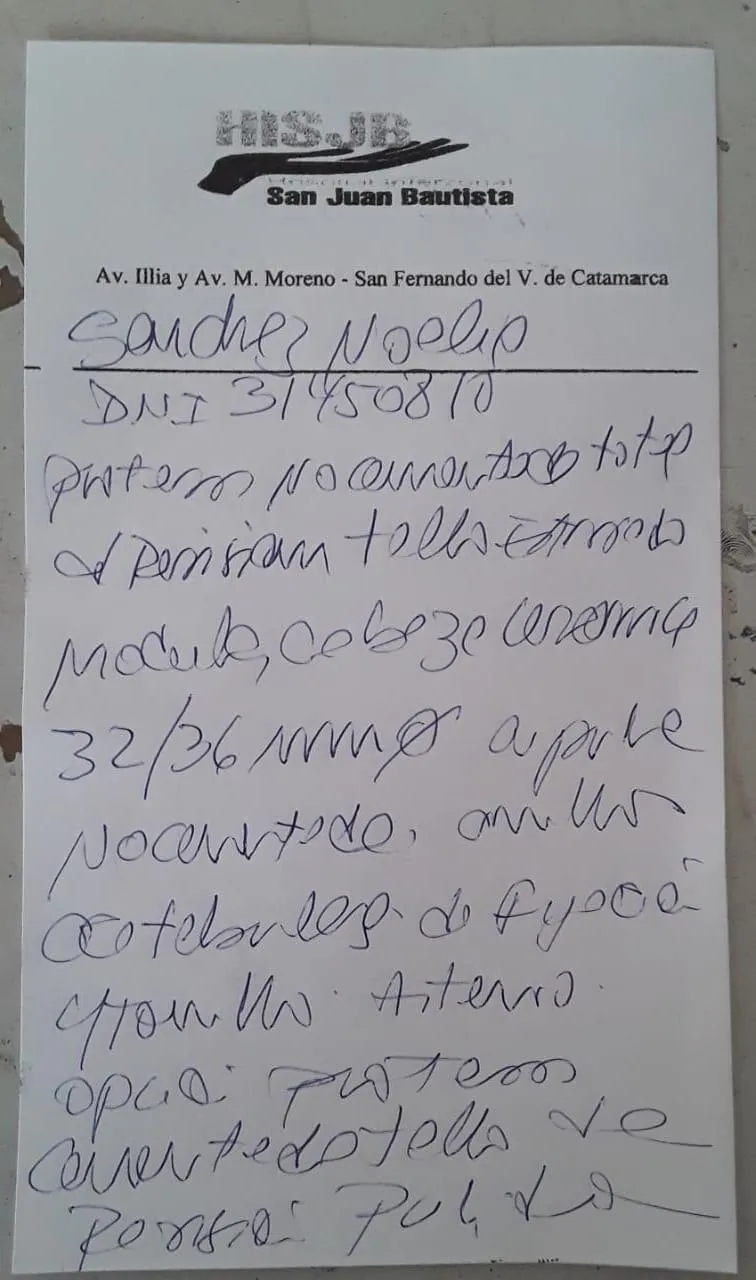 HISJB
Hospital Interzonal
San Juan Bautista
Av. Illia y Av. M. Moreno - San Fernando del V. de Catamarca
Sanchez Noelia
DNI 31450810
Protesis No cementada total
d Revision tallo Estriado
Modular, Cabeza Ceramica
32/36 mm ø
No cementado, anillo
acetabular de fijacion
y tornillos.
opcion: protesis
cementada tallo de
Revision Pulido